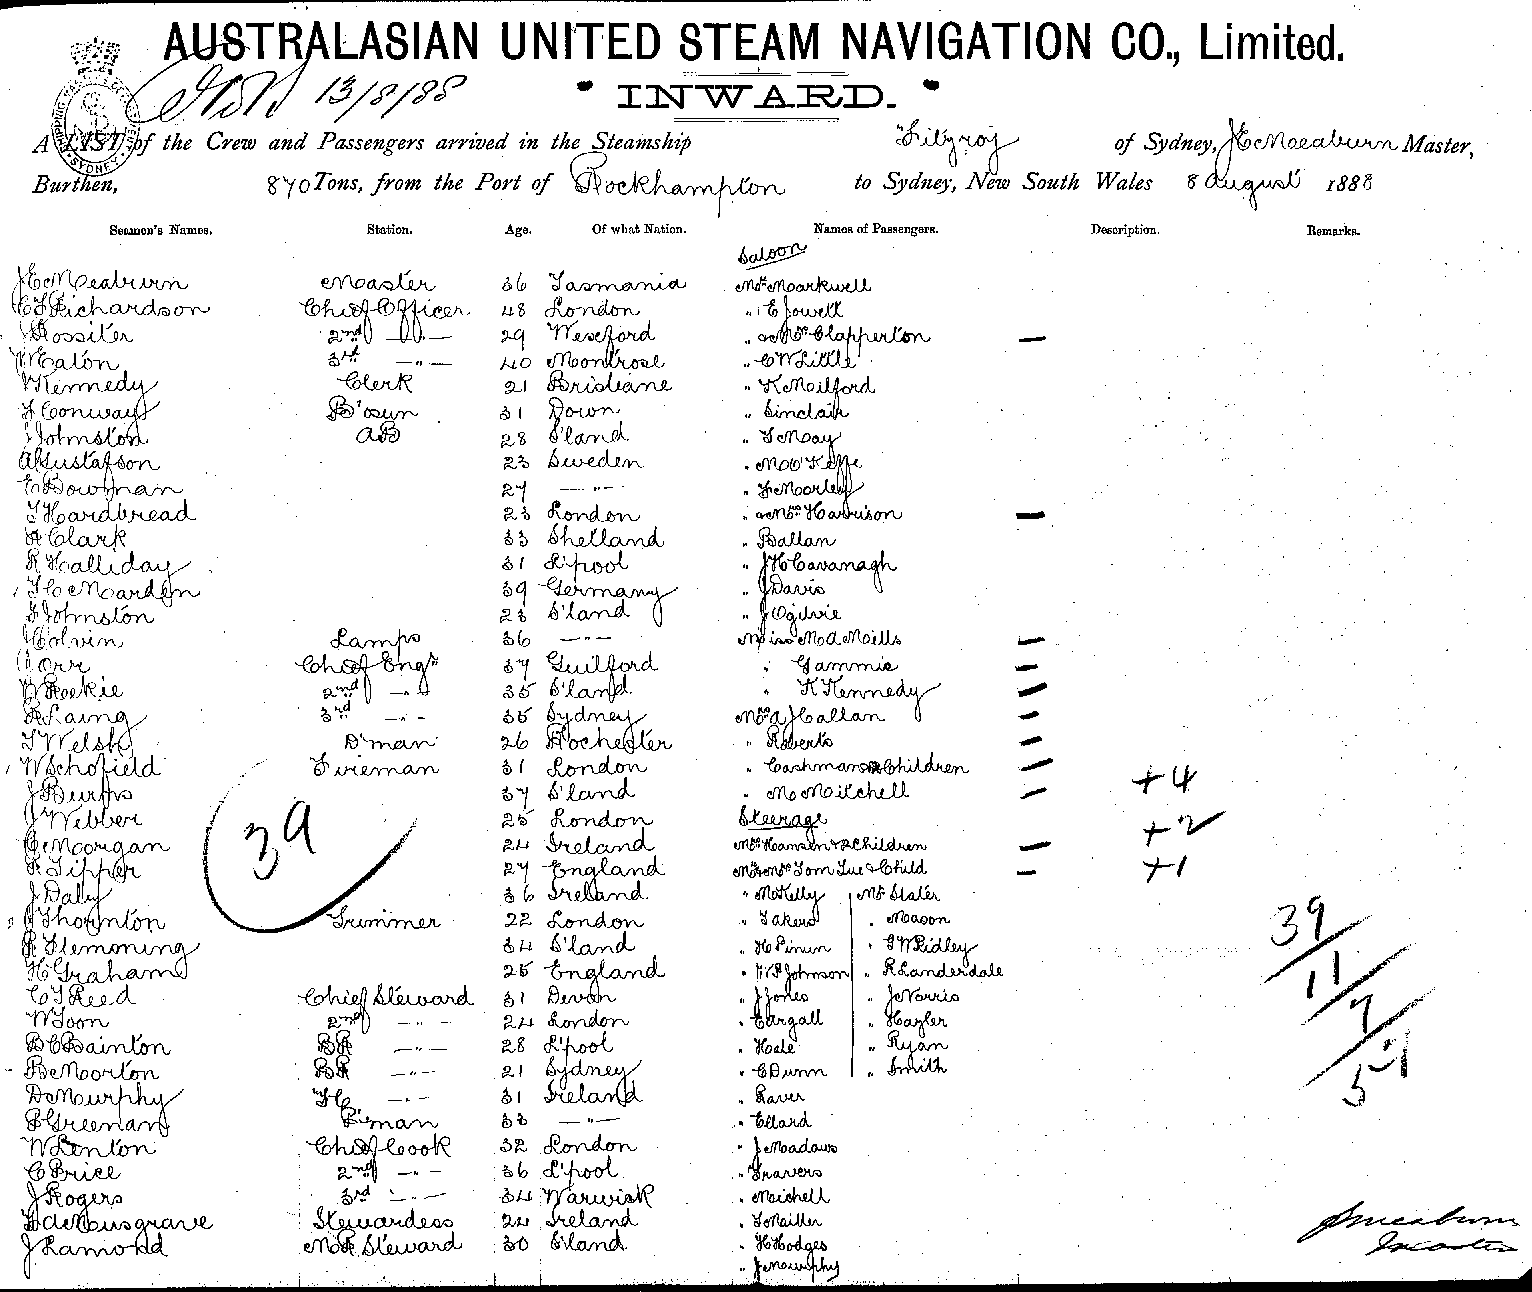 AUSTRALASIAN UNITED STEAM NAVIGATION CO., Limited.
13/8/88
INWARD.
A LIST of the Crew and Passengers arrived in the Steamship Fitzroy of Sydney, J E Meaburn Master,
Burthen, 870 Tons, from the Port of Rockhampton to Sydney, New South Wales 8 August 1888
Seamen's Names. Station. Age. Of what Nation. Names of Passengers. Description. Remarks.
Saloon
J E Meaburn Master 36 Tasmania Mr Markwell
C F Richardson Chief Officer 48 London " E Jowett
J Rossiter 2nd —"— 29 Wexford " & Mrs Clapperton —
W Eaton 3rd —"— 40 Montrose " C W Little
Kennedy Clerk 21 Brisbane " K Milford
F Conway B'osun 31 Down " Sinclair
J Johnston AB 28 S'land " F May
A Gustafson 23 Sweden " M O'Keffe
E Bowman 27 —"— " F Morley
T Hardbread 23 London " & Mrs Harrison —
A Clark 33 Shetland " Ballan
R Halliday 31 L'pool " J H Cavanagh
H C Marden 39 Germany " J Davis
F Johnston 23 S'land " J Ogilvie
J Colvin Lamps 36 —"— Miss M A Mills —
Orr Chief Engr 37 Guilford " Gammie —
W Rockie 2nd —"— 35 S'land " K Kennedy —
R Laing 3rd —"— 35 Sydney Mrs A J Callan —
T Welsh D'man 26 Rochester " Roberts —
W Schofield Fireman 31 London " Cashman & Children — +4
J Burns 37 S'land " M Mitchell —
J Webber 25 London Steerage
C Morgan 24 Ireland Mrs Hansen & 2 Children — +2
R Tipper 27 England Mr & Mrs Tom Lue & Child — +1
J Daly 36 Ireland " McKelly Mr Slater
39
J Thornton Trimmer 22 London " Takers " Mason 39
R Flemming 34 S'land " H Pinun " T W Ridley
H Graham 25 England " W P Johnson " R Landerdale 11
C T Reed Chief Steward 31 Devon " J Jones " J Norris
W Toon 2nd —"— 24 London " Cargall " Hayler 7
B C Bainton BR —"— 28 L'pool " Hale " Ryan
B Morton BR —"— 21 Sydney " C Dunn " Smith 57
D Murphy FC —"— 31 Ireland " Raver
P Greenan P'man 33 —"— " Ellard
W Lenton Chief Cook 32 London " J Meadows
C Price 2nd —"— 36 L'pool " Travers
J Rogers 3rd —"— 34 Warwick " Michell
de Musgrave Stewardess 24 Ireland " T Miller
J Lamond M R Steward 30 S'land " H Hodges
" J Murphy
J Meaburn
Master